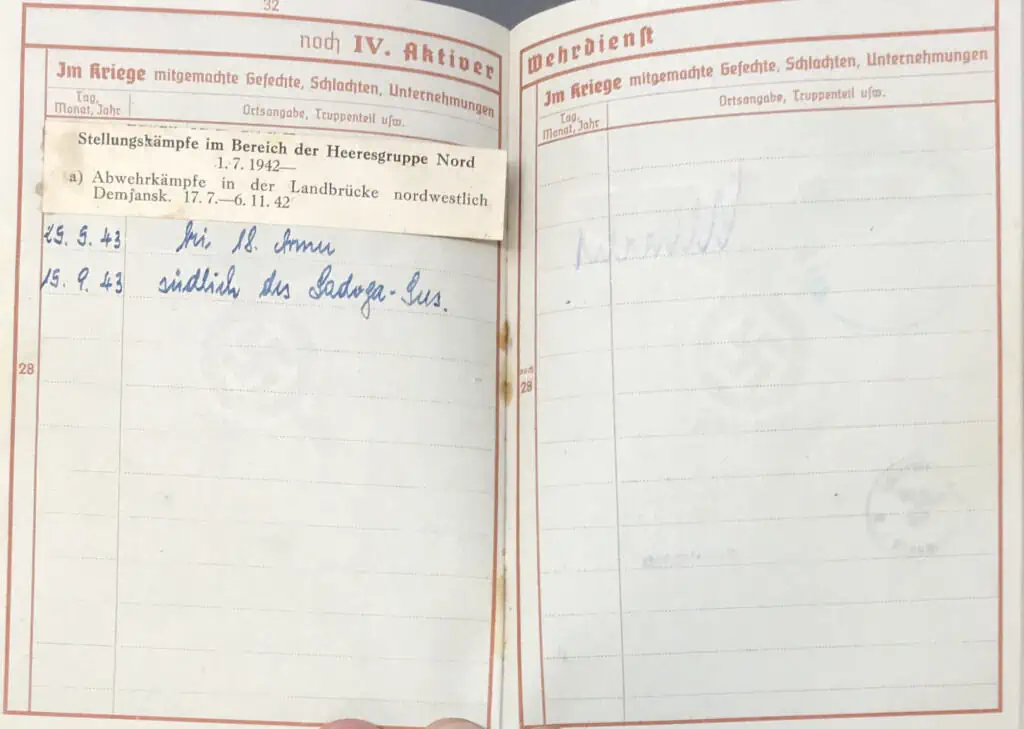 32
noch IV. Aktiver
Im Kriege mitgemachte Gefechte, Schlachten, Unternehmungen
Tag, Monat, Jahr
Ortsangabe, Truppenteil usw.
Stellungskämpfe im Bereich der Heeresgruppe Nord
1. 7. 1942—
a) Abwehrkämpfe in der Landbrücke nordwestlich
Demjansk. 17. 7.—6. 11. 42
bei 18. Armee
15. 9. 43 südlich des Ladoga-Sees.
28
Wehrdienst
Im Kriege mitgemachte Gefechte, Schlachten, Unternehmungen
Tag, Monat, Jahr
Ortsangabe, Truppenteil usw.
noch
28